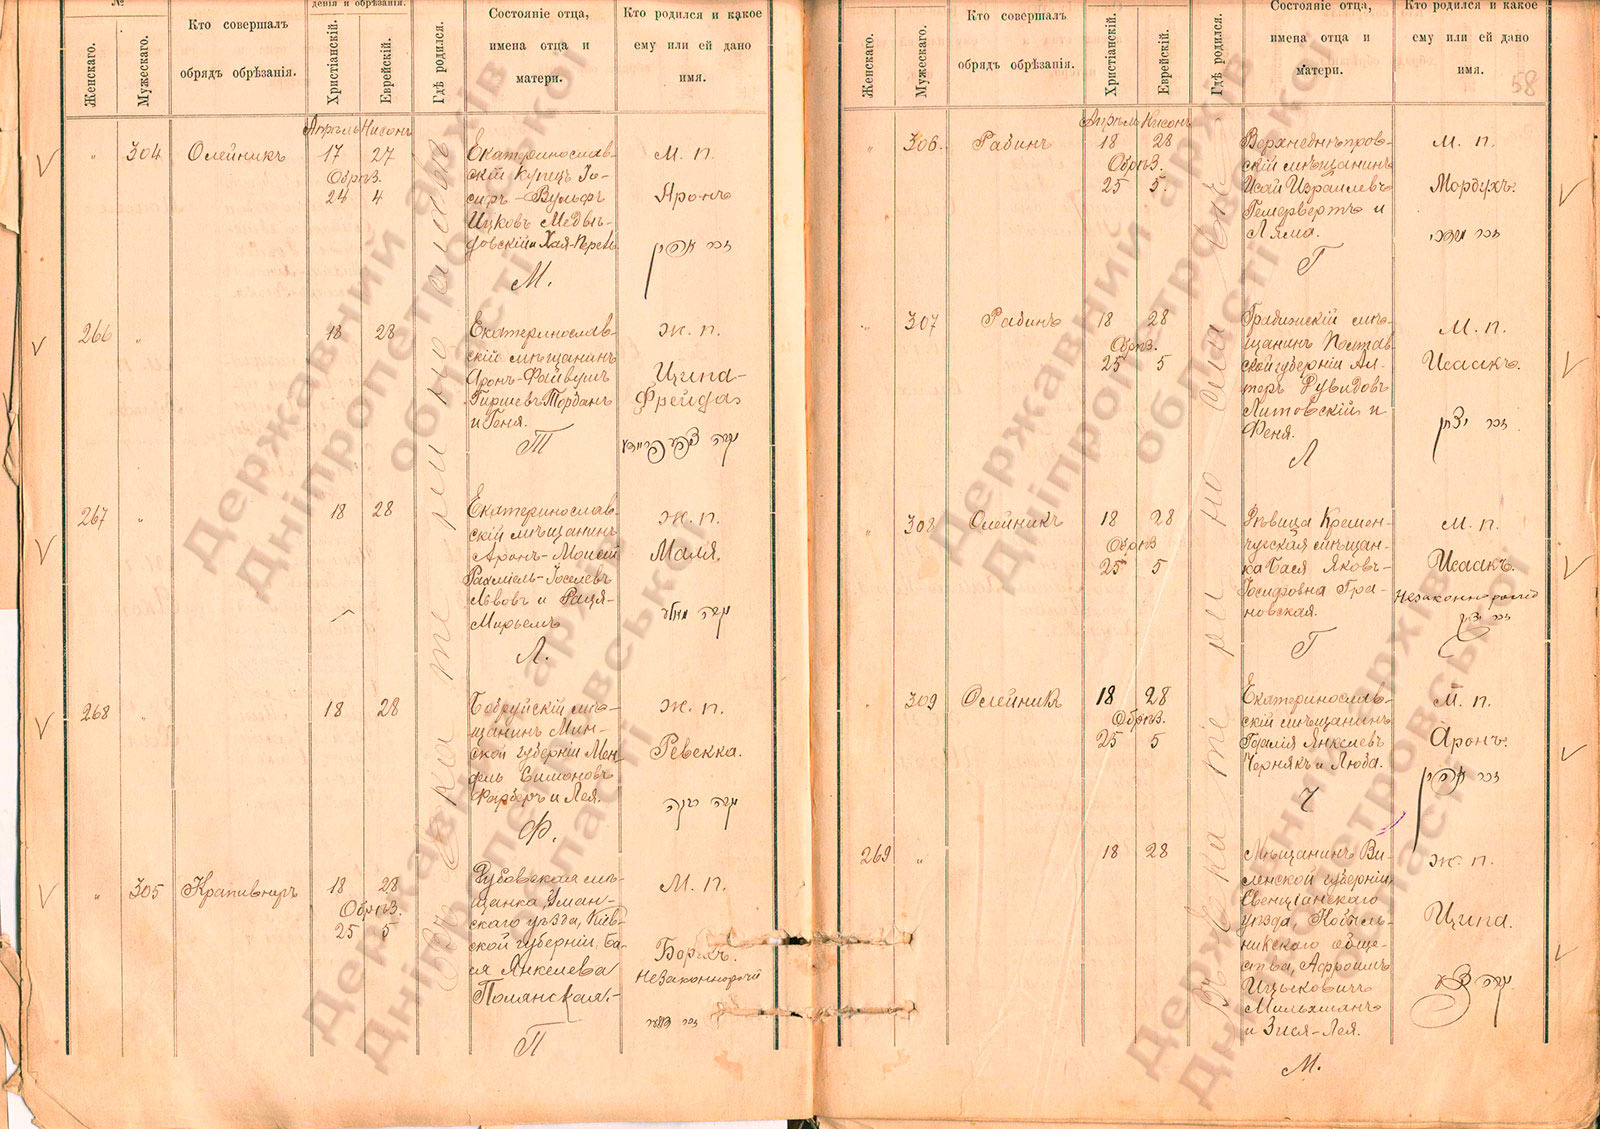 №
Женскаго.
Мужескаго.
Кто совершалъ
обрядъ обрѣзанія.
денія и обрѣзанія.
Христіанскій.
Еврейскій.
Гдѣ родился.
Состояніе отца,
имена отца и
матери.
Кто родился и какое
ему или ей дано
имя.
Апрѣль Нисонъ
" 304 Олейникъ 17 27
Обрѣз.
24 4
Екатеринослав-
скій купецъ Іо-
сифъ-Вульфъ
Ицковъ Медвѣ-
довскій и Хая-Перель
М.
М. п.
Аронъ
זכר אהרן
266 " 18 28
Екатеринослав-
скій мѣщанинъ
Аронъ-Файвишъ
Гиршевъ Торданъ
и Геня.
Т
Ж. п.
Ципа-
Фрейда
267 " 18 28
Екатеринослав-
скій мѣщанинъ
Аронъ-Моисей
Рахміель-Іоселевъ
Львовъ и Рація-
Мирьемъ
Л.
Ж. п.
Маля.
268 " 18 28
Бобруйскій мѣ-
щанинъ Мин-
ской губерніи Мен-
дель Симоновъ
Фарберъ и Лея.
Ф.
Ж. п.
Ревекка.
" 305 Крапивнеръ 18 28
Обрѣз.
25 5
щанка, Уман-
скаго уѣзда, Кіев-
ской губерніи, Ба-
ся Янкелева
Полянская.-
П
М. п.
Борехъ.
Незаконнорожд
Въ Екатеринославѣ
Женскаго.
Мужескаго.
Кто совершалъ
обрядъ обрѣзанія.
Христіанскій.
Еврейскій.
Гдѣ родился.
Состояніе отца,
имена отца и
матери.
Кто родился и какое
ему или ей дано
имя.
58
Апрѣль Нисонъ
" 306. Рабинъ 18 28
Обрѣз.
25 5.
Верхнеднѣпров-
скій мѣщанинъ
Исай Израилевъ
Гельфертъ и
Ляма.
Г
М. п.
Мордухъ.
זכר מרדכי
" 307 Рабинъ 18 28
Обрѣз.
25 5
Градижскій мѣ-
щанинъ Полтав-
ской губерніи Аль-
теръ Рувидовъ
Литовскій и
Феня.
Л
М. п.
Исаакъ.
זכר יצחק
" 308 Олейникъ 18 28
Обрѣз
25 5
Дѣвица Кремен-
чугская мѣщан-
ка Бася Яковъ-
Іосифовна Гра-
новская.
Г
М. п.
Исаакъ.
Незаконнорожд
זכר יצחק
" 309 Олейникъ 18 28
Обрѣз.
25 5
Екатеринослав-
скій мѣщанинъ
Гдалія Янкелевъ
Чернякъ и Люба.
Ч
М. п.
Аронъ.
זכר אהרן
269 " 18 28
Мѣщанинъ Ви-
ленской губерніи,
Свенцянскаго
уѣзда, Кобыль-
никскаго обще-
ства, Афроимъ
Ицьковичъ
Мильхманъ
и Зися-Лея.
М.
Ж п.
Ципа.
Въ Екатеринославѣ
Державний архів
Дніпропетровської
області